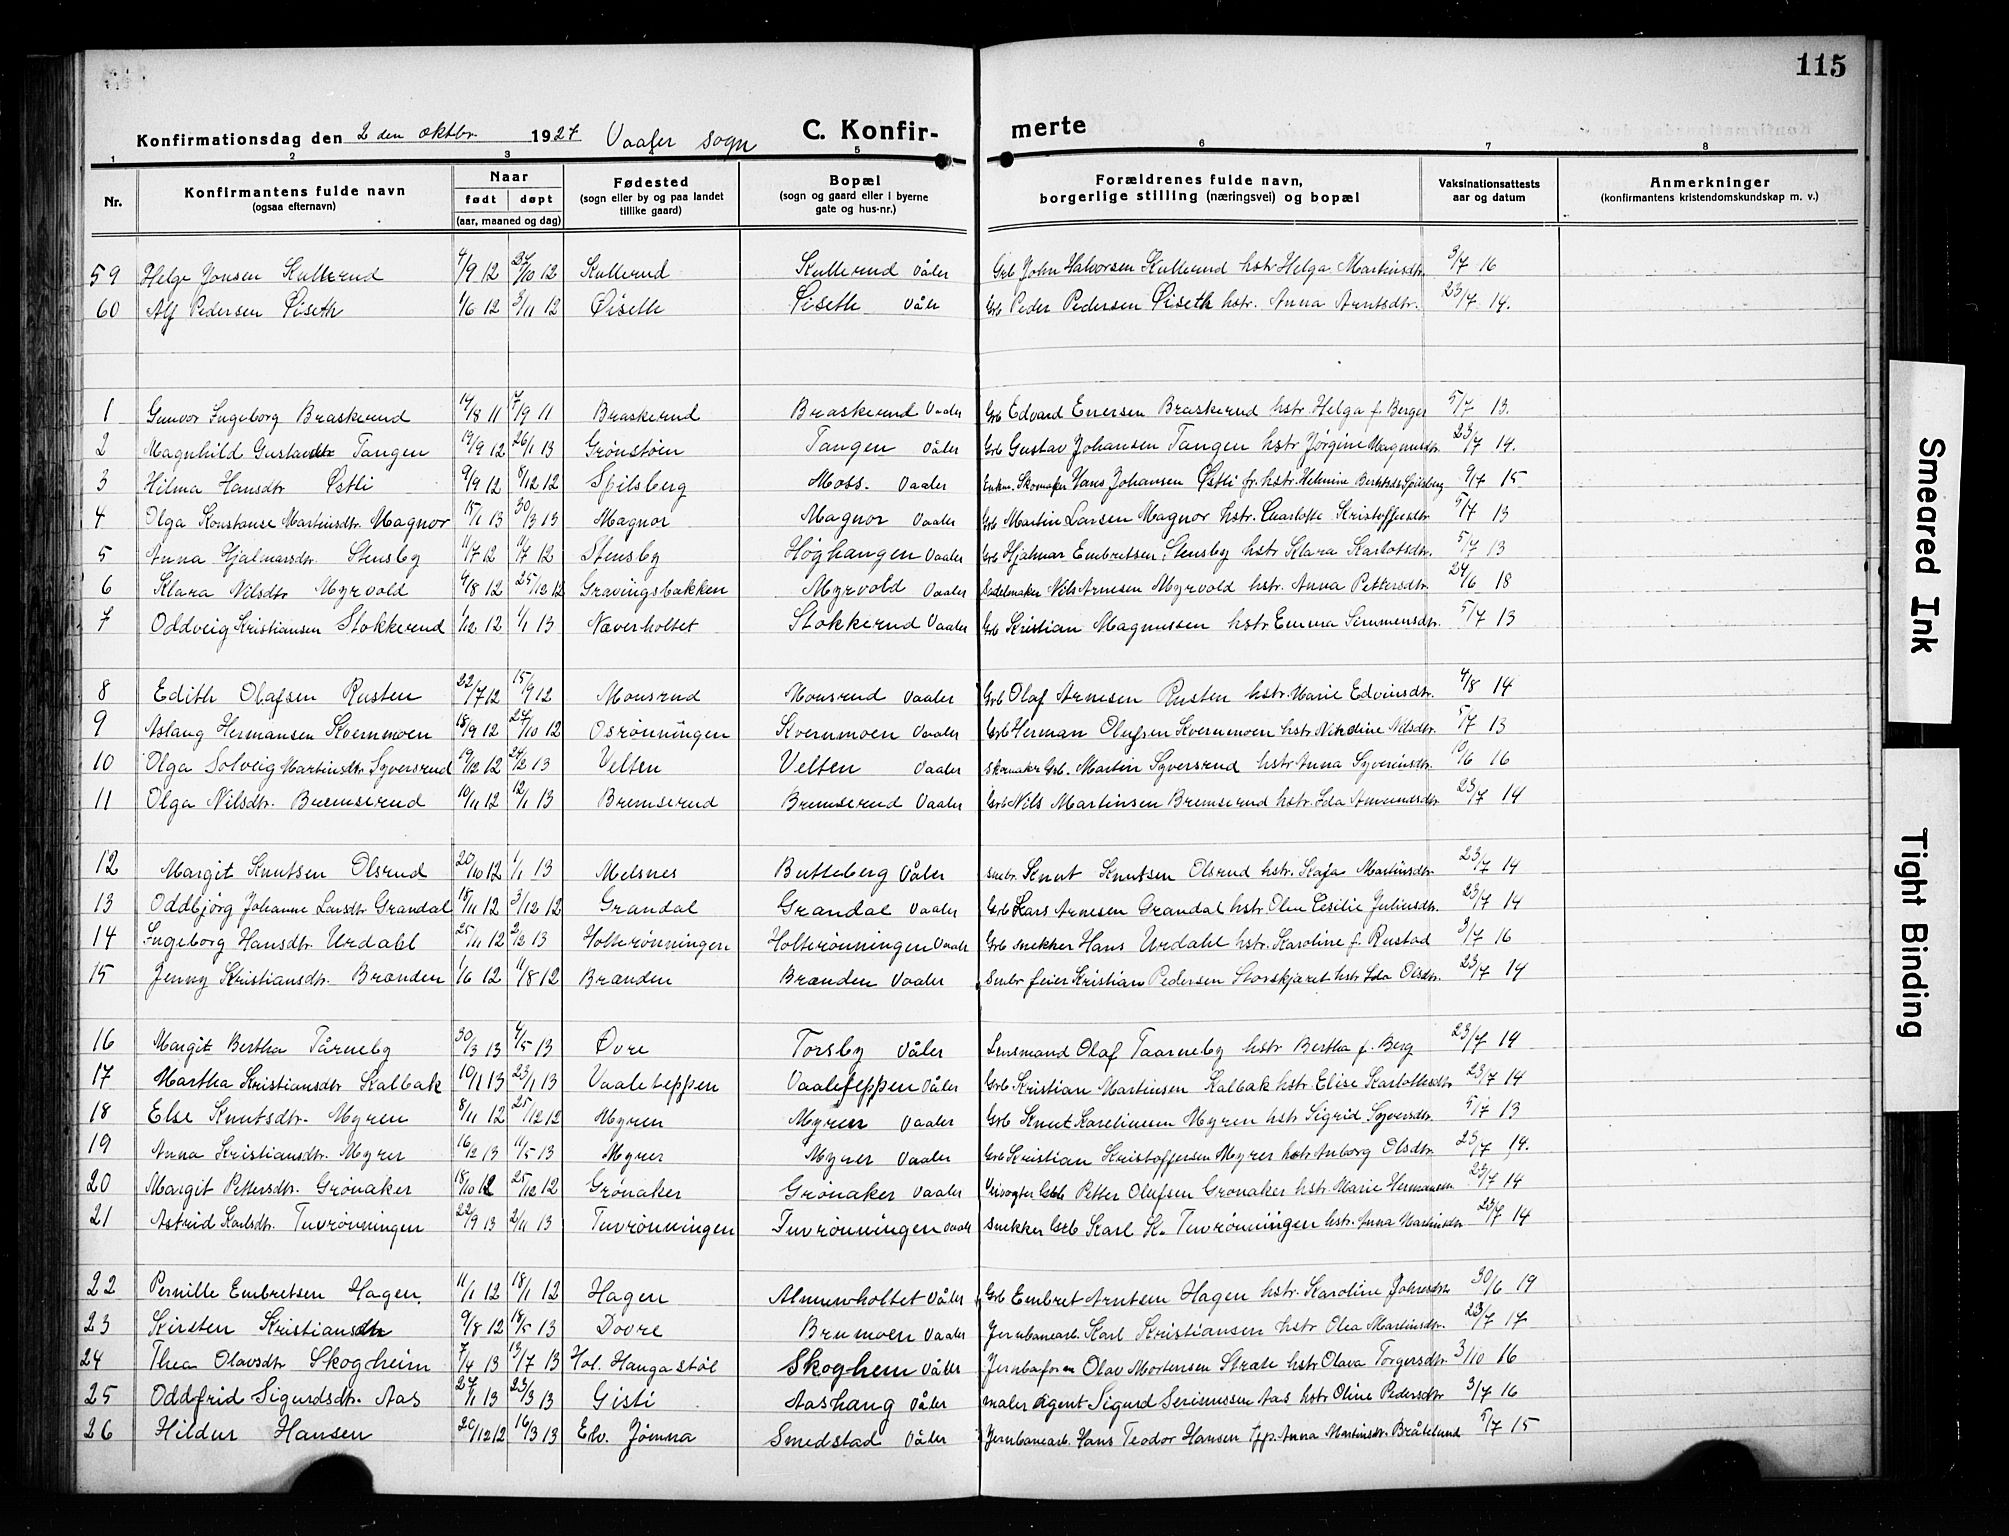 115
Konfirmationsdag den 2 den oktbr. 1927 Vaaler sogn C. Konfir- merte
1 2 3 5 6 7 8
Nr. Konfirmantens fulde navn (ogsaa efternavn) Naar født døpt (aar, maaned og dag) Fødested (sogn eller by og paa landet tillike gaard) Bopæl (sogn og gaard eller i byerne gate og hus-nr.) Forældrenes fulde navn, borgerlige stilling (næringsvei) og bopæl Vaksinationsattests aar og datum Anmerkninger (konfirmantens kristendomskundskap m. v.)
59 Helge Jonsen Kullerud 4/9 12 27/10 12 Kullerud Kullerud Våler Grb John Halvorsen Kullerud hstr Helga Martinsdtr. 3/7 16
60 Alf Pedersen Øiseth 1/6 12 3/11 12 Øiseth Øiseth Våler Grb Peder Pedersen Øiseth hstr. Anna Arntsdtr. 23/7 14.
1 Gunvor Ingeborg Braskerud 14/8 11 17/9 11 Braskerud Braskerud Vaaler Grb Edvard Enersen Braskerud hstr Helga f. Berger 5/7 13.
2 Magnhild Gustavsdtr Tangen 19/9 12 26/1 13 Grønstøen Tangen Våler Grb Gustav Johansen Tangen hstr Jørgine Magnusdtr. 23/7 14.
3 Hilma Hansdtr Østli 9/9 12 8/12 12 Spilsberg Moss. Vaaler Enkm. Skomaker Hans Johansen Østli fr. hstr. Helmine Spilsberg 9/7 15
4 Olga Konstanse Martinsdtr. Magnor 15/1 13 30/3 13 Magnor Magnor Vaaler Grb Martin Larsen Magnor hstr. Charlotte Kristoffersdtr 5/7 13
5 Anna Hjalmarsdtr. Stensby 11/7 12 Stensby Høghaugen Vaaler Grb Hjalmar Embretsen Stensby hstr Klara Karlotsdtr. 5/7 13
6 Klara Nilsdtr Myrvold 4/8 12 25/12 12 Gravingsbakken Myrvold Vaaler Sadelmaker Nils Arnesen Myrvold hstr. Anna Pettersdtr 24/6 18
7 Oddveig Kristiansen Stokkerud 1/12 12 1/1 13 Næverholtet Stokkerud Vaaler Grb Kristian Magnussen hstr Emma Simmensdtr. 5/7 13
8 Edith Olafsen Rusten 22/7 12 15/9 12 Monsrud Monsrud Vaaler Grb Olaf Arnesen Rusten hstr Marie Edvinsdtr. 4/8 14
9 Aslaug Hermansen Kvernmoen 18/9 12 27/10 12 Osrønningen Kvernmoen Vaaler Grb Herman Olufsen Kvernmoen hstr. Nikoline Nilsdtr. 5/7 13
10 Olga Solveig Martinsdtr Syversrud 19/12 12 24/2 13 Velten Velten Vaaler Skomaker Grb. Martin Syversrud hstr Anna Syverinsdtr 19/6 16
11 Olga Nilsdtr. Bremserud 10/11 12 12/1 13 Bremserud Bremserud Vaaler Grb Nils Martinsen Bremserud hstr. Ida Amundsdtr 23/7 14
12 Margit Knutsen Olsrud 20/10 12 1/1 13 Melsnes Butteberg Våler smbr. Knut Knutsen Olsrud hstr. Kaja Martinsdtr 23/7 14
13 Oddbjørg Johanne Larsdtr Grandal 18/11 12 3/12 12 Grandal Grandal Vaaler Grb Lars Arnesen Grandal hstr Oline Cesilie Juliusdtr. 23/7 14
14 Ingeborg Hansdtr. Urdahl 25/11 12 2/2 13 Holterønningen Holterønningen Vaaler Grb snekker Hans Urdahl hstr. Karoline f. Rustad 3/7 16
15 Jenny Kristiansdtr. Branden 1/6 12 11/8 12 Branden Branden Vaaler Smbr feier Kristian Pedersen Storskjæret hstr Ida Olsdtr. 23/7 14
16 Margit Bertha Tårneby 30/3 13 4/5 13 Øvre Torsby Våler Lensmand Olaf Taarneby hstr Bertha f. Berg 23/7 14
17 Martha Kristiansdtr Kalbak 10/1 13 23/1 13 Vaaleteppen Vaaleteppen Våler Grb Kristian Martinsen Kalbak hstr Elise Karlottesdtr 23/7 14
18 Else Knutsdtr. Myren 8/11 12 25/12 12 Myren Myren Vaaler Grb Knut Karelinsen Myren hstr Sigrid Syversdtr. 5/7 13
19 Anna Kristiansdtr. Myrer 16/2 13 11/5 13 Myrer Myrer Vaaler Grb Kristian Kristoffersen Myrer hstr Anborg Olsdtr. 23/7 14.
20 Margit Pettersdtr. Grønaker 18/10 12 25/12 12 Grønaker Grønaker Vaaler Grb Petter Olufsen Grønaker hstr Marie Hermansen 23/7 14
21 Astrid Karlsdtr. Tuvrønningen 22/9 13 2/11 13 Tuvrønningen Tuvrønningen Vaaler snekker Grb Karl K. Tuvrønningen hstr. Anna Martinsdtr 23/7 14
22 Pernille Embretsen Hagen. 11/1 12 18/1 12 Hagen Almenholtet Våler Grb Embret Arntsen Hagen hstr. Karoline Johnsdtr 30/6 19
23 Kirsten Kristiansdtr 9/8 12 18/5 13 Dovre Brumoen Vaaler Jernbanearb. Karl Kristiansen hstr Olea Martinsdtr. 23/7 17
24 Thea Olavsdtr Skogheim 7/4 13 13/7 13 Hol. Haugastøl Skoghem Våler Jernbaform Olav Mortensen Stræte hstr Olava Torgersdtr 3/10 16
25 Oddfrid Sigurdsdtr. Aas 27/1 13 23/3 13 Gisti Aashaug Våler maler Agent Sigurd Aas hstr Oline Pedersdtr 3/7 16
26 Hildur Hansen 20/12 12 16/3 13 Elv. Jømna Smedstad Våler Jernbanearb. Hans Teodor Hansen Anna Martinsdtr. Bråtelund 5/7 15
Smeared Ink
Tight Binding